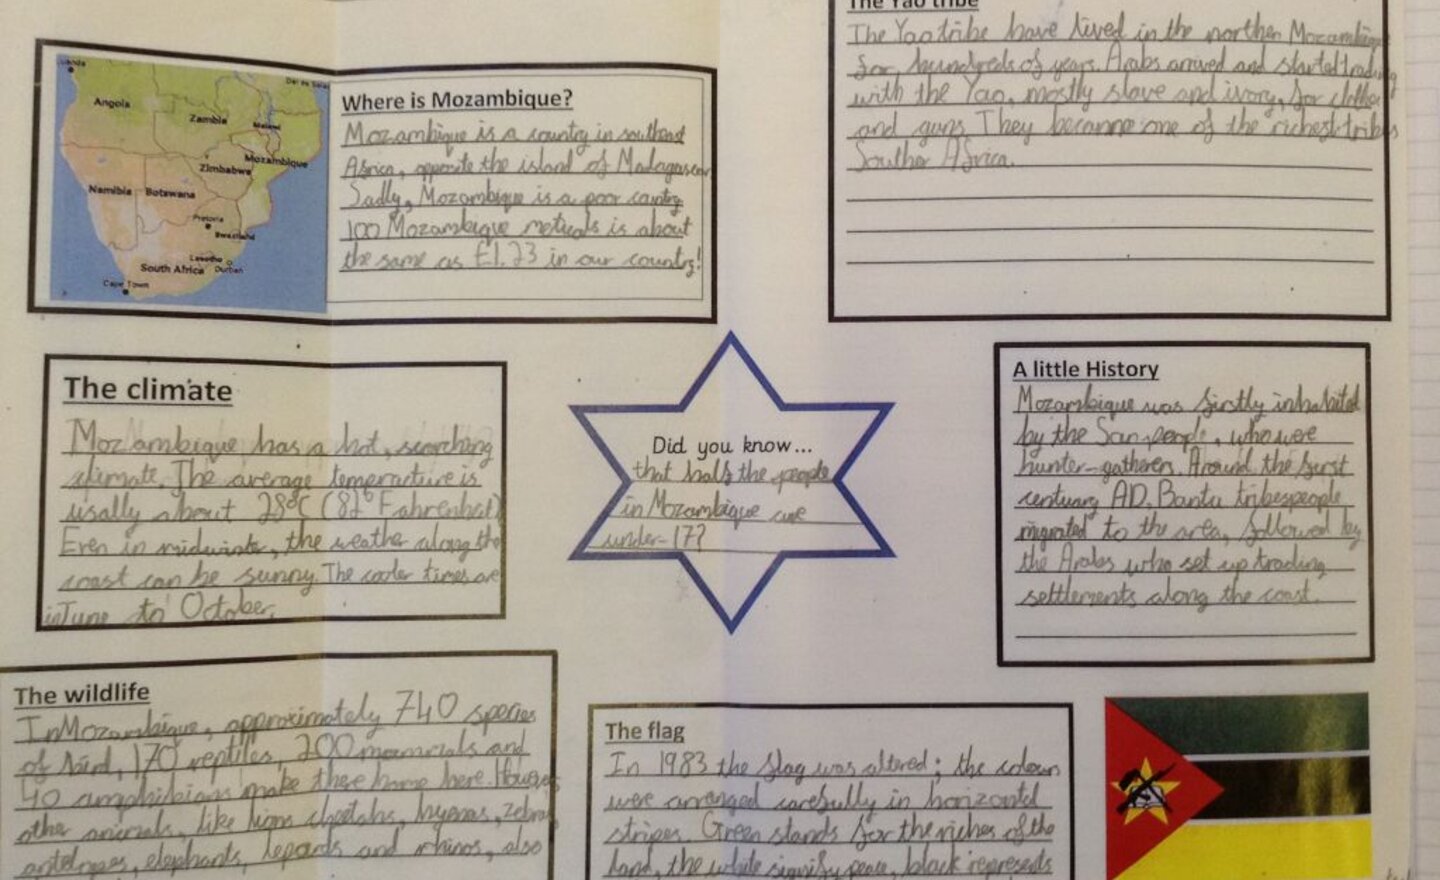 Luanda
Dar es Salaa
Angola
Zambia
Malawi
Mozambique
Zimbabwe
Namibia
Botswana
Pretoria
Swaziland
Lesotho
South Africa
Durban
Cape Town
Where is Mozambique?
Mozambique is a country in southeast
Africa, opposite the island of Madagascar
Sadly, Mozambique is a poor country
100 Mozambique meticals is about
the same as £1.23 in our country!
The Yao tribe
The Yao tribe have lived in the northen Mozambique
for hundreds of years. Arabs arrived and started trading
with the Yao, mostly slave and ivory, for clothe
and guns. They became one of the richest tribes
Souther Africa.
The climate
Mozambique has a hot, scorching
climate. The average temperacture is
usally about 28°C (82° Fahrenheit)
Even in midwinte, the weather along the
coast can be sunny. The cooler times are
in June to October.
Did you know...
that half the people
in Mozambique are
under-17?
A little History
Mozambique was firstly inhabited
by the San people, who were
hunter-gatherers. Around the first
centuary AD. Bantu tribespeople
migrated to the area, followed by
the Arabs who set up trading
settlements along the coast.
The wildlife
In Mozambique, approximately 740 species
of bird, 170 reptiles, 200 mammals and
40 amphibians make there home here. However
other animals, like lions cheetahs, hyenas, zebras
antelopes, elephants, lepards and rhinos, also
The flag
In 1983 the flag was altered; the colours
were arranged carefully in horizontal
stripes. Green stands for the riches of the
land, the white signify peace, black represents